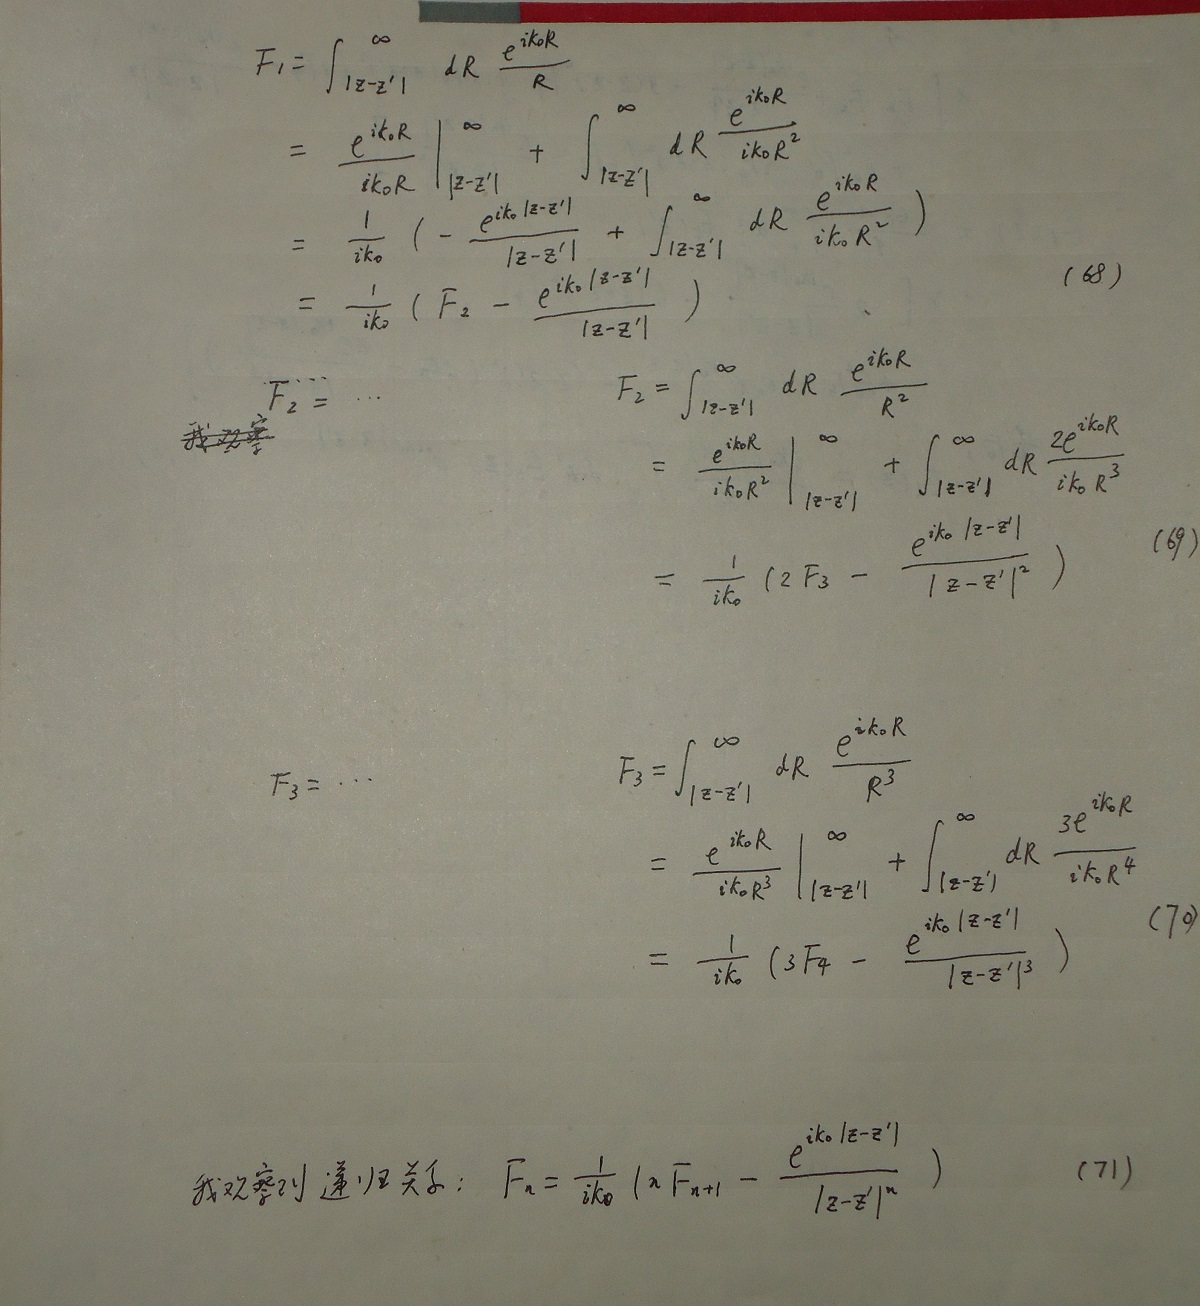 F₁ = ∫_{|z-z'|}^{∞} dR e^{ik₀R}/R
= e^{ik₀R}/(ik₀R) |_{|z-z'|}^{∞} + ∫_{|z-z'|}^{∞} dR e^{ik₀R}/(ik₀R²)
= 1/(ik₀) ( - e^{ik₀|z-z'|}/|z-z'| + ∫_{|z-z'|}^{∞} dR e^{ik₀R}/(ik₀R²) )
= 1/(ik₀) ( F₂ - e^{ik₀|z-z'|}/|z-z'| ) (68)
F₂ = ... F₂ = ∫_{|z-z'|}^{∞} dR e^{ik₀R}/R²
我观察
= e^{ik₀R}/(ik₀R²) |_{|z-z'|}^{∞} + ∫_{|z-z'|}^{∞} dR 2e^{ik₀R}/(ik₀R³)
= 1/(ik₀) ( 2F₃ - e^{ik₀|z-z'|}/|z-z'|² ) (69)
F₃ = ... F₃ = ∫_{|z-z'|}^{∞} dR e^{ik₀R}/R³
= e^{ik₀R}/(ik₀R³) |_{|z-z'|}^{∞} + ∫_{|z-z'|}^{∞} dR 3e^{ik₀R}/(ik₀R⁴)
= 1/(ik₀) ( 3F₄ - e^{ik₀|z-z'|}/|z-z'|³ ) (70)
我观察到递归关系: Fₙ = 1/(ik₀) ( nFₙ₊₁ - e^{ik₀|z-z'|}/|z-z'|ⁿ ) (71)